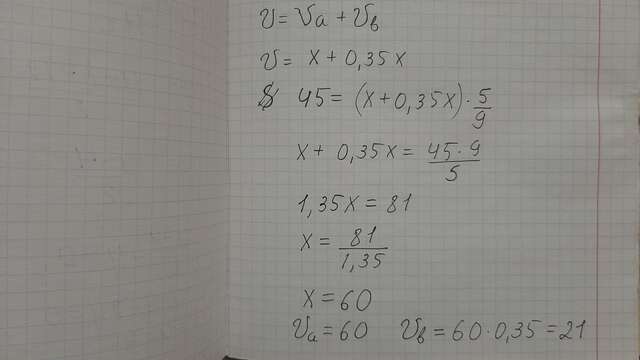 v = vₐ + vв
v = x + 0,35x
45 = (x + 0,35x) · 5/9
x + 0,35x = 45·9/5
1,35x = 81
x = 81/1,35
x = 60
vₐ = 60 vв = 60·0,35 = 21